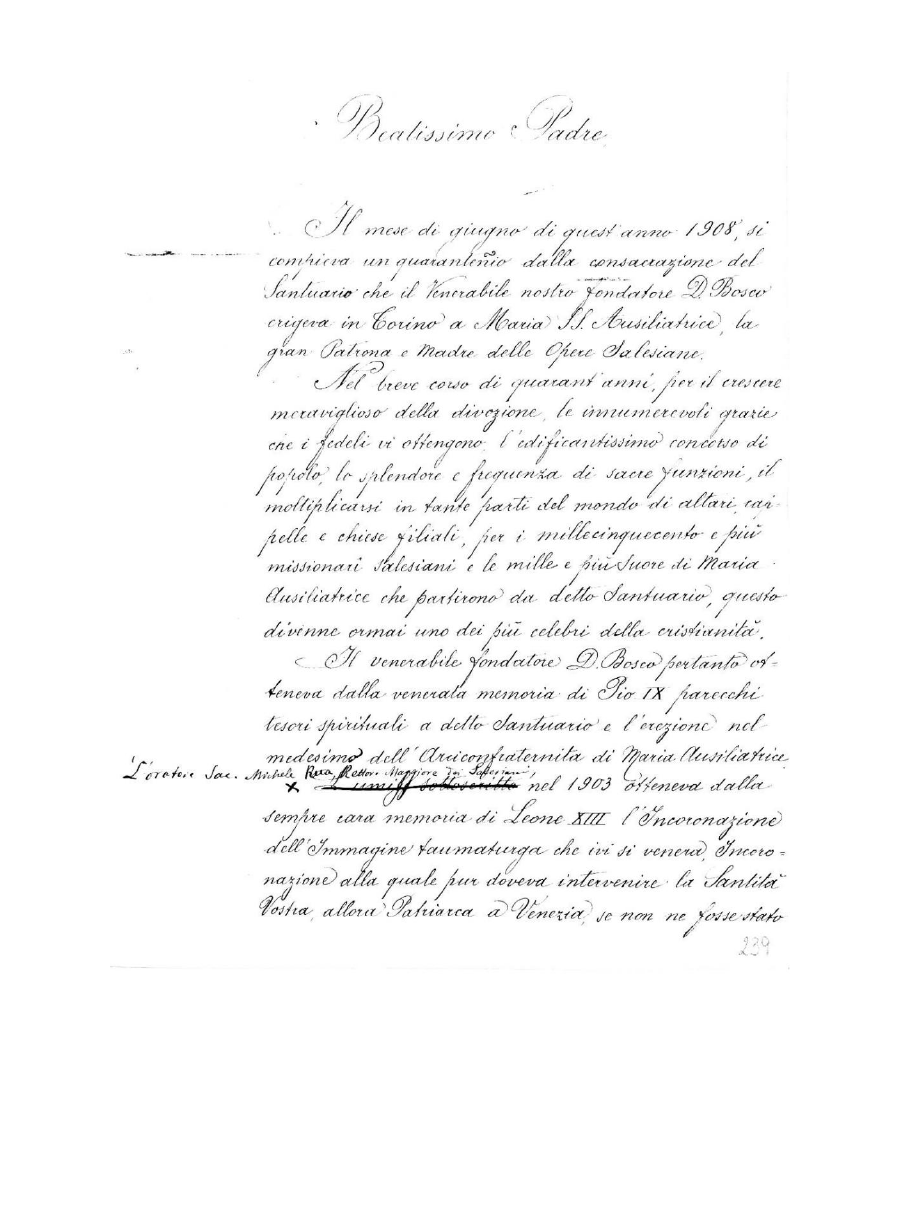 Beatissimo Padre
Il mese di giugno di quest'anno 1908, si
compieva un quarantennio dalla consacrazione del
Santuario che il Venerabile nostro fondatore D. Bosco
erigeva in Torino a Maria SS. Ausiliatrice, la
gran Patrona e Madre delle Opere Salesiane.
Nel breve corso di quarant'anni, per il crescere
meraviglioso della divozione, le innumerevoli grazie
che i fedeli vi ottengono, l'edificantissimo concorso di
popolo, lo splendore e frequenza di sacre funzioni, il
moltiplicarsi in tante parti del mondo di altari, cap-
pelle e chiese filiali, per i millecinquecento e più
missionari Salesiani e le mille e più Suore di Maria
Ausiliatrice che partirono da detto Santuario, questo
divenne ormai uno dei più celebri della cristianità.
Il venerabile fondatore D. Bosco pertanto ot-
teneva dalla venerata memoria di Pio IX parecchi
tesori spirituali a detto Santuario e l'erezione nel
medesimo dell'Arciconfraternita di Maria Ausiliatrice
L'oratore Sac. Michele Rua, Rettor Maggiore dei Salesiani,
x L'umil sottoscritto nel 1903 otteneva dalla
sempre cara memoria di Leone XIII l'Incoronazione
dell'Immagine taumaturga che ivi si venera, Incoro-
nazione alla quale pur doveva intervenire la Santità
Vostra, allora Patriarca a Venezia, se non ne fosse stato
239